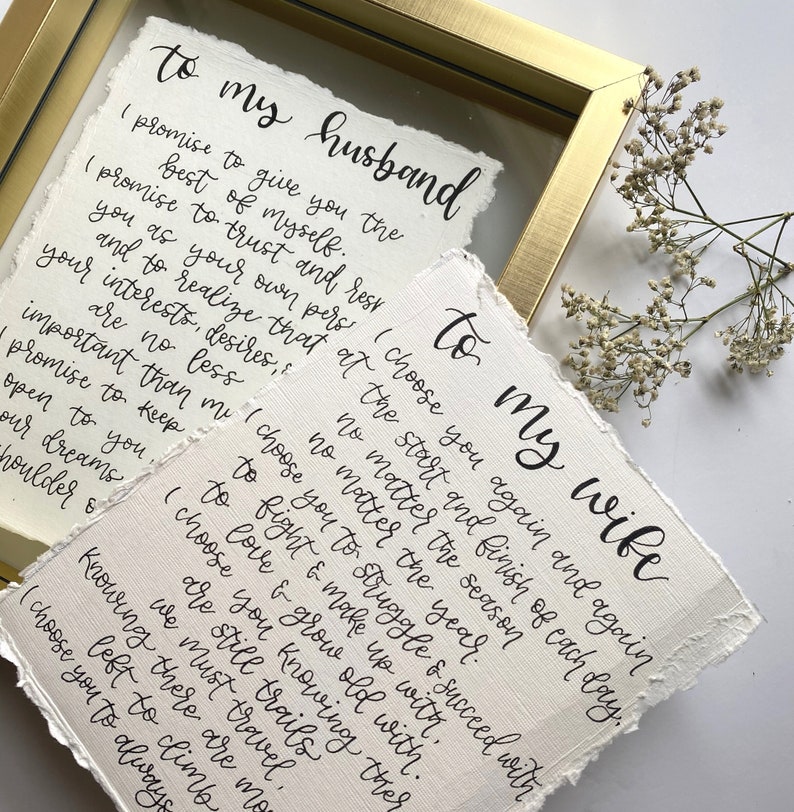 to my husband
I promise to give you the
best of myself.
I promise to trust and
you as your own
and to realize that
your interests, desires,
are no less
important than
I promise to keep
open to you,
our dreams
shoulder
to my wife
I choose you again and again
at the start and finish of each day,
no matter the season
no matter the year.
I choose you to struggle & succeed with
to fight & make up with,
to love & grow old with.
I choose you knowing
are still trails
we must travel,
Knowing there are
left to climb
I choose you to always